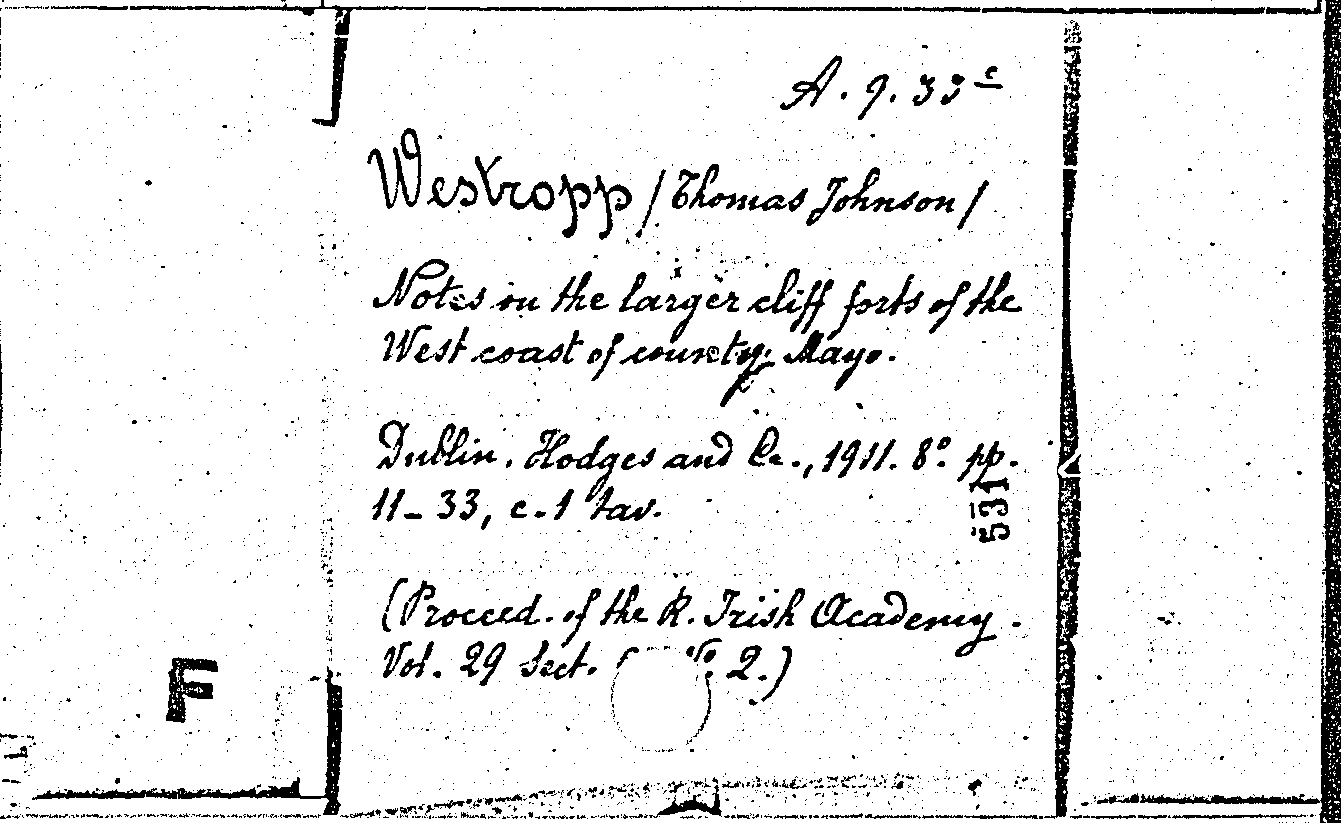 A. 9. 33 c
Westropp /Thomas Johnson/
Notes on the larger cliff forts of the
West coast of county Mayo.
Dublin, Hodges and Co., 1911. 8° pp.
11-33, c. 1 tav.
531
(Proceed. of the R. Irish Academy.
Vol. 29 Sect. 2.)
F